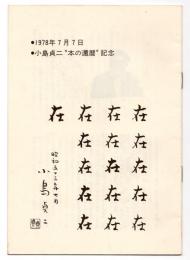 ●1978年7月7日
●小島貞二“本の還暦”記念
在 在 在 在
在 在 在
在 在 在
在 在 在
在 在 在
昭和五十三年七月
小島貞二